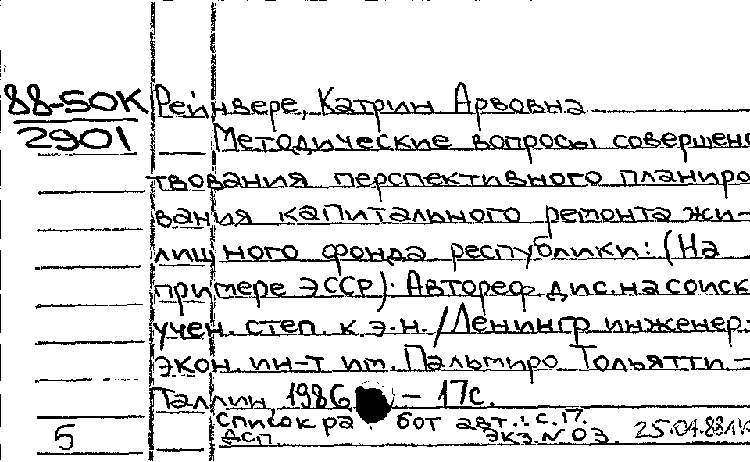 88-50К Рейнвере, Катрин Арвовна
2901 Методические вопросы совершенс
твования перспективного планиро
вания капитального ремонта жи-
лищного фонда республики: (На
примере ЭССР): Автореф. дис. на соиск
учен. степ. к.э.н. / Ленингр инженер.-
экон. ин-т им. Пальмиро Тольятти. -
Таллин, 1986 - 17с.
Список ра бот авт.: с. 17.
5 ДСП Экз. N 03 25.04.88